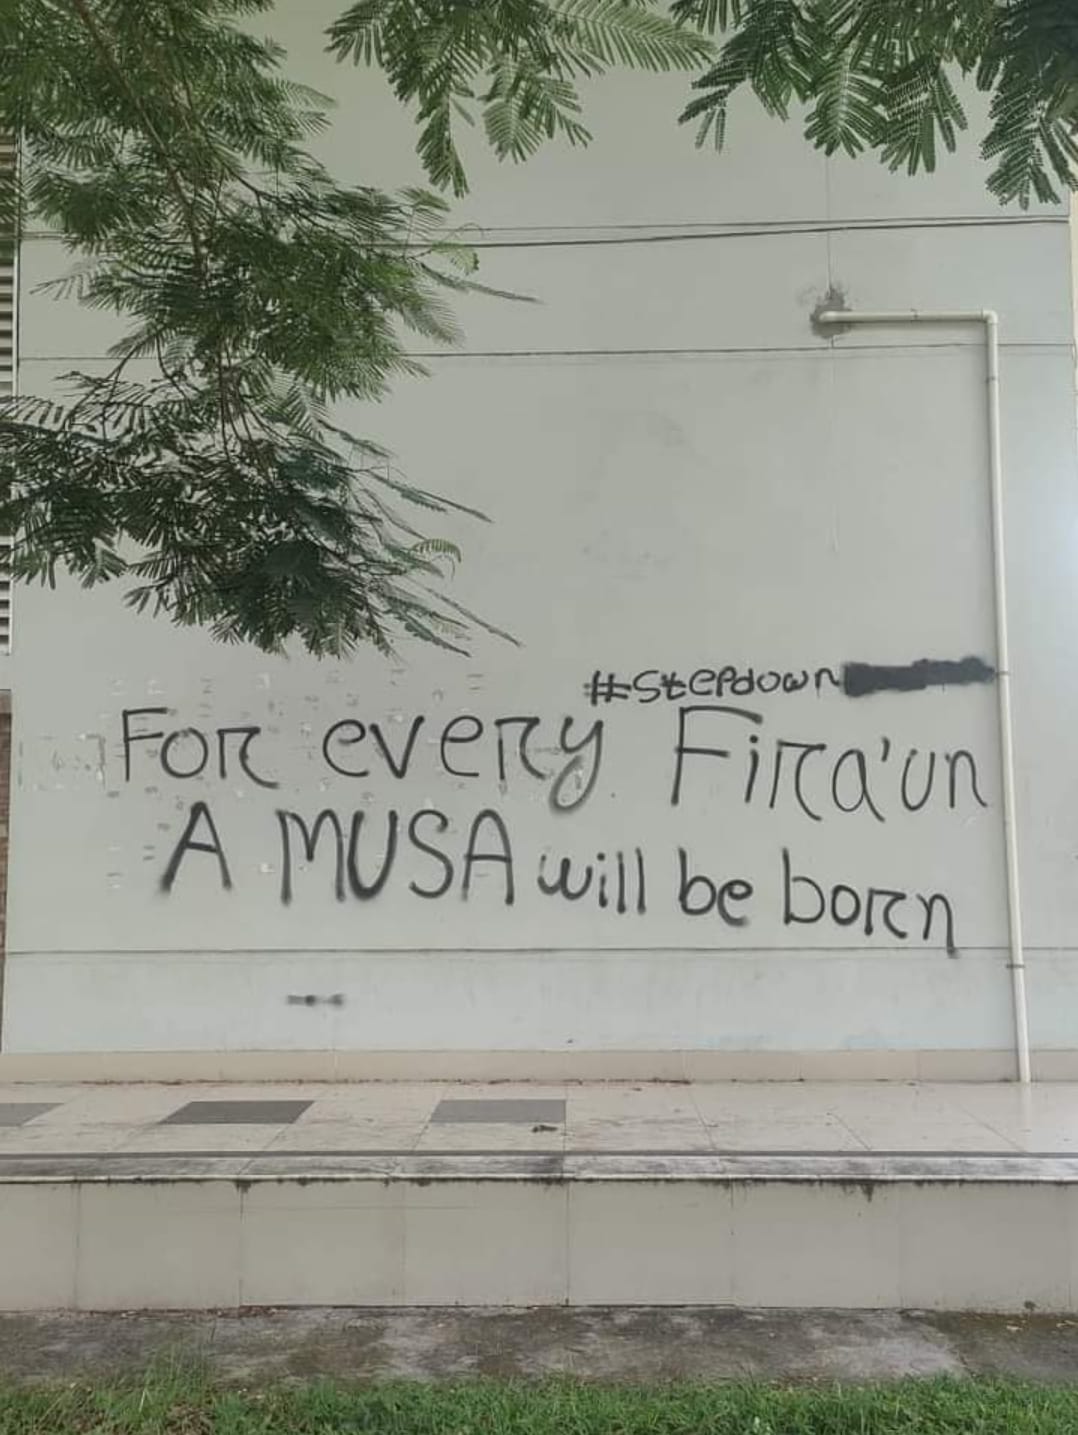 #Stepdown
For every Fira'un
A MUSA will be born